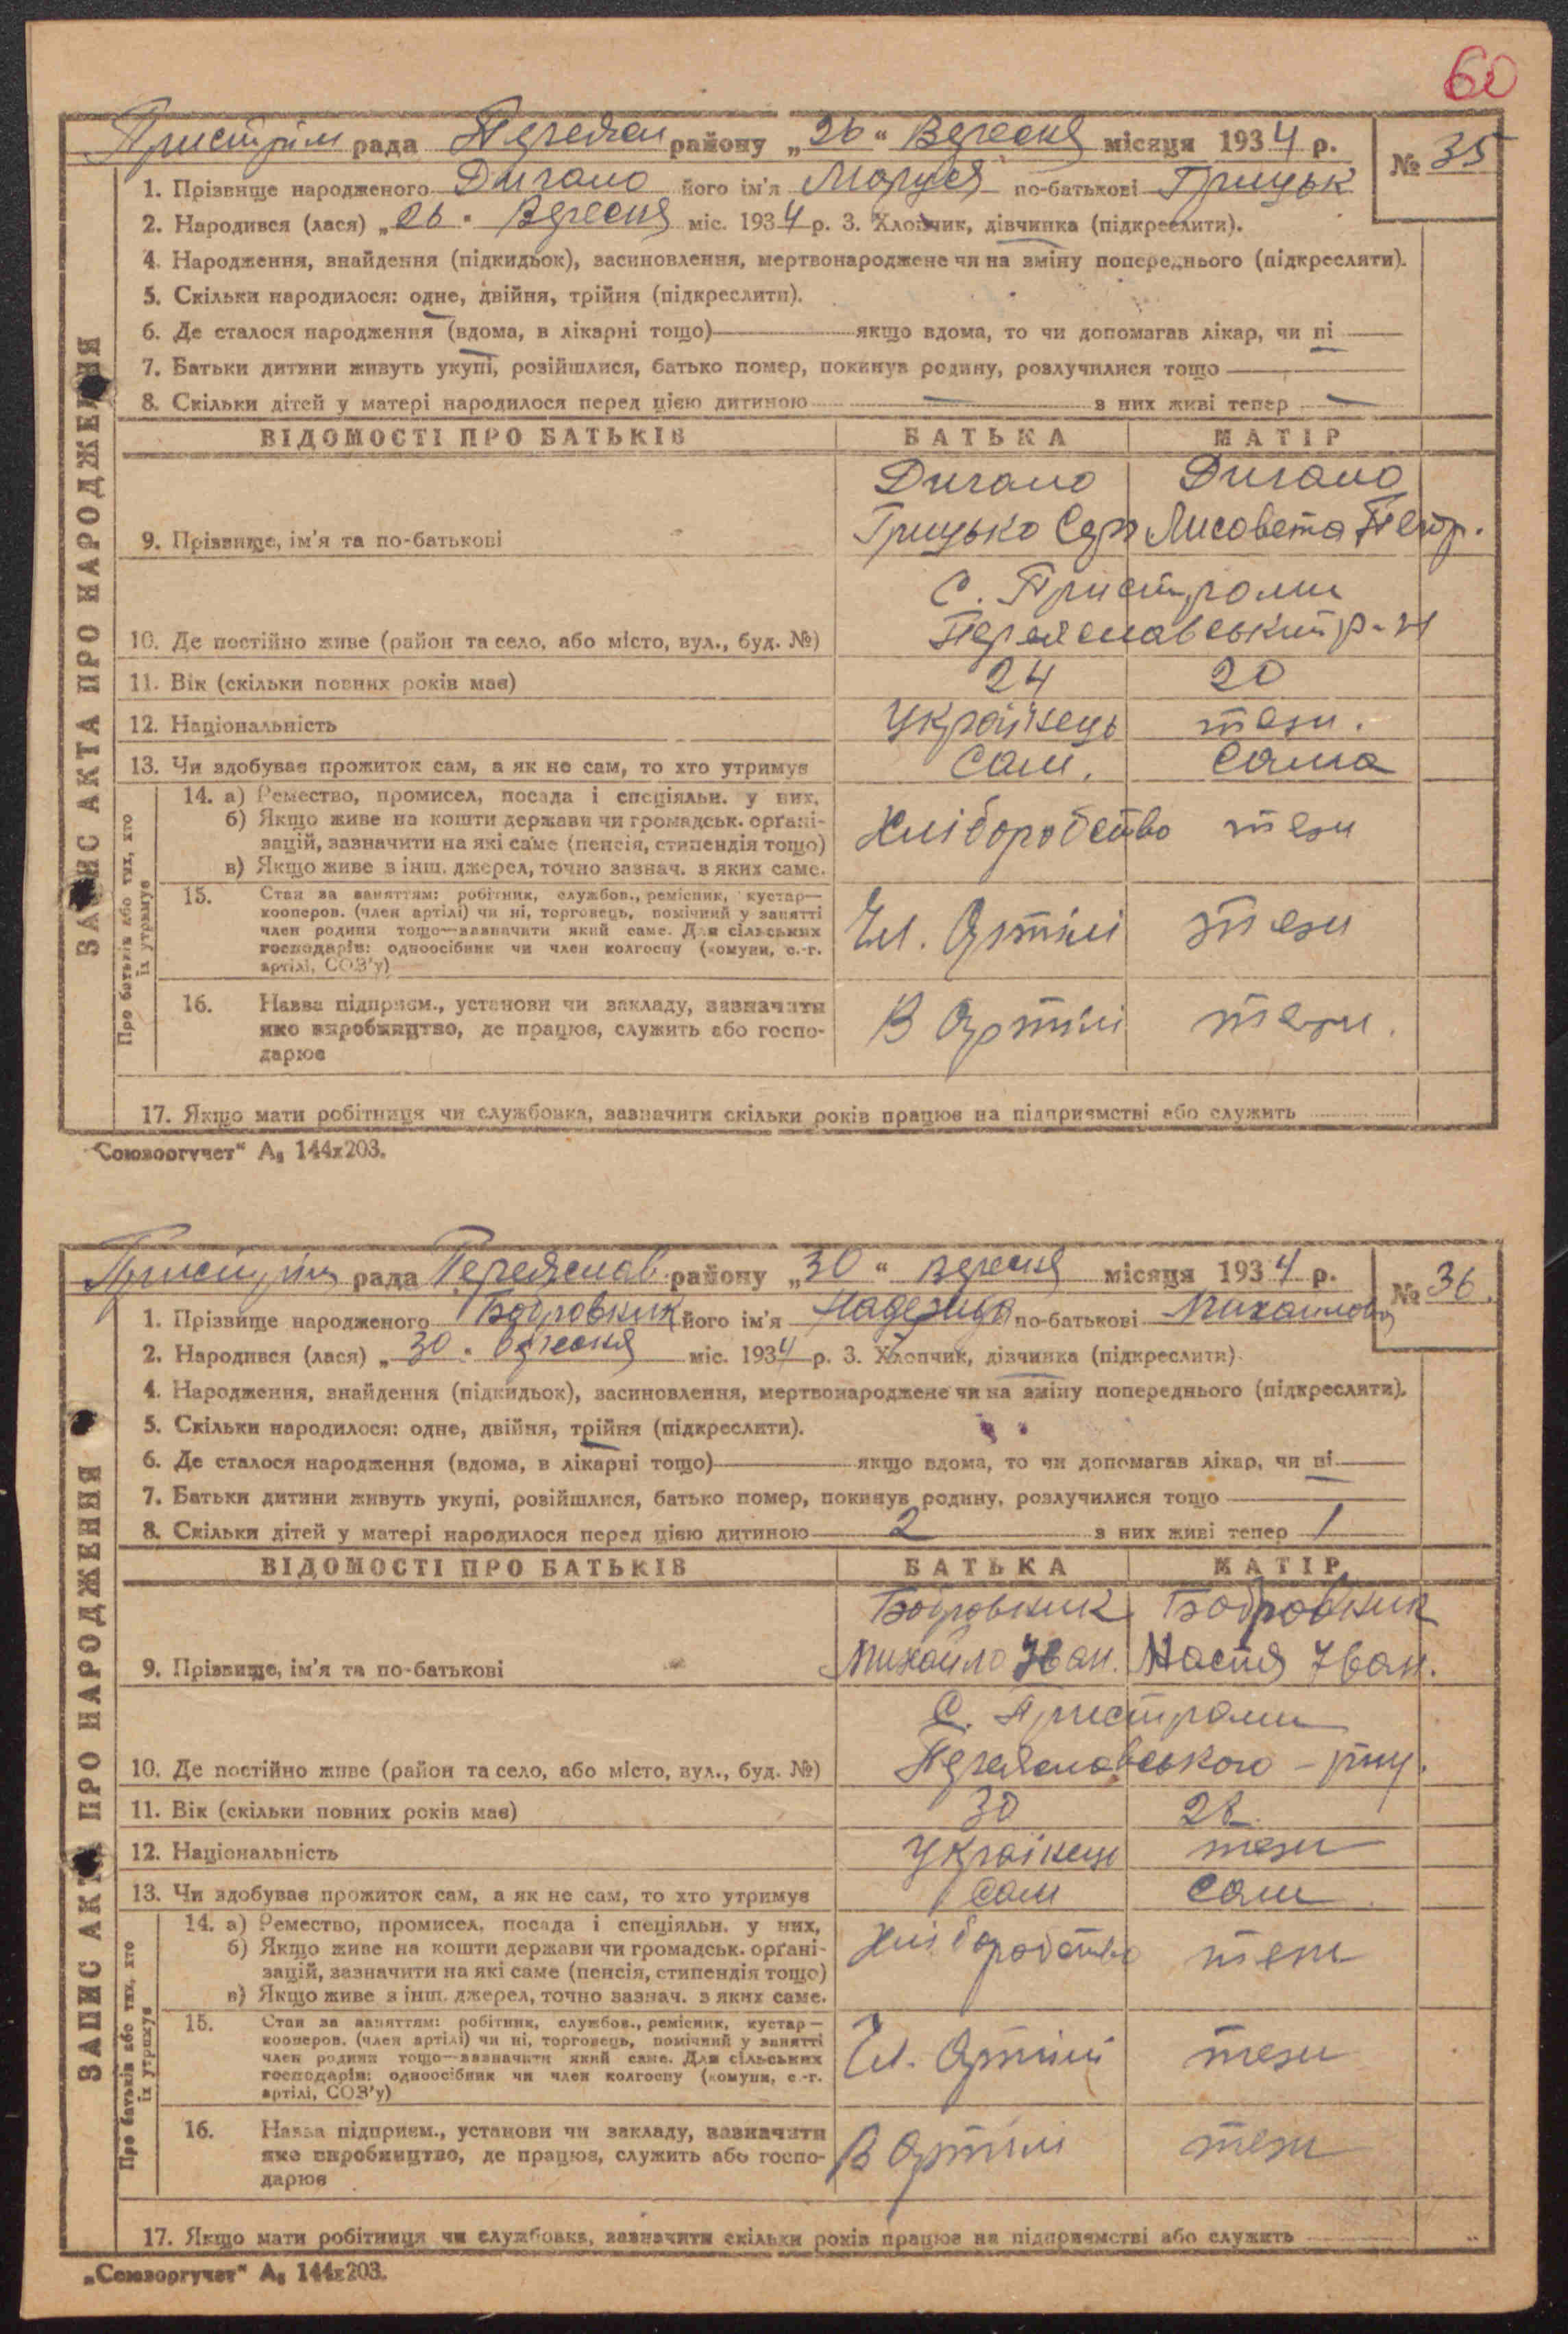 60
Пристрім рада Переясл району „26“ Вересня місяця 1934 р. № 35
1. Прізвище народженого Дигало його ім'я Маруся по-батькові Грицьк
2. Народився (лася) „26“ Вересня міс. 1934 р. 3. Хлопчик, дівчинка (підкреслити).
4. Народження, знайдення (підкидьок), засиновлення, мертвонароджене чи на зміну попереднього (підкреслити).
5. Скільки народилося: одне, двійня, трійня (підкреслити).
6. Де сталося народження (вдома, в лікарні тощо) якщо вдома, то чи допомагав лікар, чи ні
7. Батьки дитини живуть укупі, розійшлися, батько помер, покинув родину, розлучилися тощо
8. Скільки дітей у матері народилося перед цією дитиною — з них живі тепер —
ЗАПИС АКТА ПРО НАРОДЖЕННЯ
ВІДОМОСТІ ПРО БАТЬКІВ БАТЬКА МАТІР
Дигало Дигало
9. Прізвище, ім'я та по-батькові Грицько Лисовета Петр.
с. Пристроми
10. Де постійно живе (район та село, або місто, вул., буд. №) Переяславський р-н
11. Вік (скільки повних років має) 24 20
12. Національність Українець тези.
13. Чи здобуває прожиток сам, а як не сам, то хто утримує Сам. Сама
Про батьків або тих, хто їх утримує
14. а) Ремество, промисел, посада і спеціяльн. у них.
б) Якщо живе на кошти держави чи громадськ. орґані-
зацій, зазначити на які саме (пенсія, стипендія тощо) Хліборобство тези
в) Якщо живе з інш. джерел, точно зазнач. з яких саме.
15. Стан за заняттям: робітник, службов., ремісник, кустар—
кооперов. (член артілі) чи ні, торговець, помічний у занятті
член родини тощо—зазначити який саме. Для сільських Чл. Артілі тези
господарів: одноосібник чи член колгоспу (комуни, с.-г.
артілі, СОЗ'у)
16. Назва підприєм., установи чи закладу, зазначити
яке виробництво, де працює, служить або госпо- В Артілі тези.
дарює
17. Якщо мати робітниця чи службовка, зазначити скільки років працює на підприємстві або служить
„Союзоргучет“ А₅ 144х203.
Пристрім рада Переяслав району „30“ вересня місяця 1934 р. № 36.
1. Прізвище народженого Бобровник його ім'я Надежда по-батькові Михайлова
2. Народився (лася) „30“ вересня міс. 1934 р. 3. Хлопчик, дівчинка (підкреслити).
4. Народження, знайдення (підкидьок), засиновлення, мертвонароджене чи на зміну попереднього (підкреслити).
5. Скільки народилося: одне, двійня, трійня (підкреслити).
6. Де сталося народження (вдома, в лікарні тощо) якщо вдома, то чи допомагав лікар, чи ні
7. Батьки дитини живуть укупі, розійшлися, батько помер, покинув родину, розлучилися тощо
8. Скільки дітей у матері народилося перед цією дитиною 2 з них живі тепер 1
ЗАПИС АКТА ПРО НАРОДЖЕННЯ
ВІДОМОСТІ ПРО БАТЬКІВ БАТЬКА МАТІР
Бобровник Бобровник
9. Прізвище, ім'я та по-батькові Михайло Іван. Настя Іван.
С. Пристроми
10. Де постійно живе (район та село, або місто, вул., буд. №) Переяславського
11. Вік (скільки повних років має) 30 28
12. Національність Українець тези
13. Чи здобуває прожиток сам, а як не сам, то хто утримує Сам Сам
Про батьків або тих, хто їх утримує
14. а) Ремество, промисел, посада і спеціяльн. у них,
б) Якщо живе на кошти держави чи громадськ. орґані-
зацій, зазначити на які саме (пенсія, стипендія тощо) Хліборобство тези
в) Якщо живе з інш. джерел, точно зазнач. з яких саме.
15. Стан за заняттям: робітник, службов., ремісник, кустар—
кооперов. (член артілі) чи ні, торговець, помічний у занятті
член родини тощо—зазначити який саме. Для сільських Чл. Артілі тези
господарів: одноосібник чи член колгоспу (комуни, с.-г.
артілі, СОЗ'у)
16. Назва підприєм., установи чи закладу, зазначити
яке виробництво, де працює, служить або госпо- В Артілі тези
дарює
17. Якщо мати робітниця чи службовка, зазначити скільки років працює на підприємстві або служить
„Союзоргучет“ А₅ 144х203.